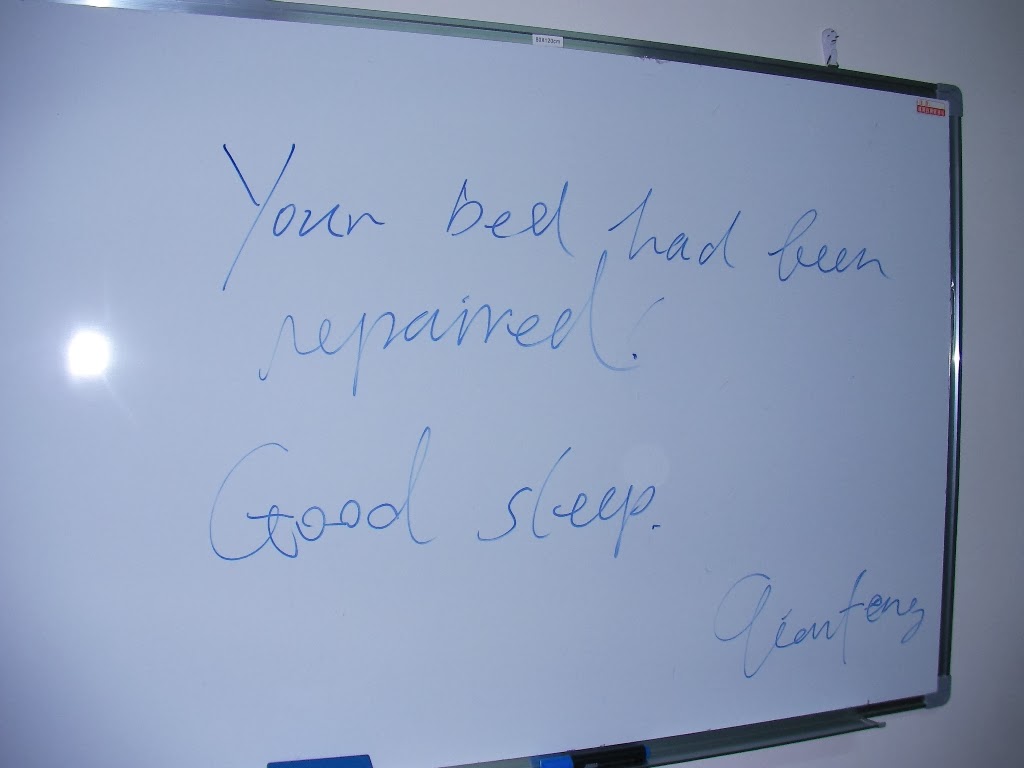 80X120cm
Your bed had been
repaired.
Good sleep.
Qianfeng